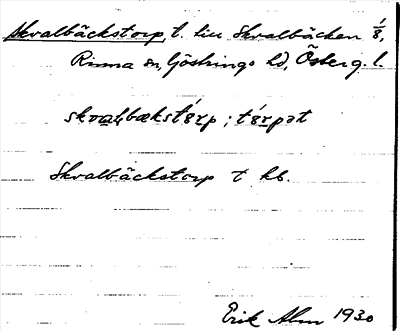 Skvalbäckstorp, t. till Skvalbäcken 1/8,
Rinna sn, Göstrings hd, Österg. l.
skvalbækstórp; tórpət
Skvalbäckstorp t kb.
Erik Alm 1930